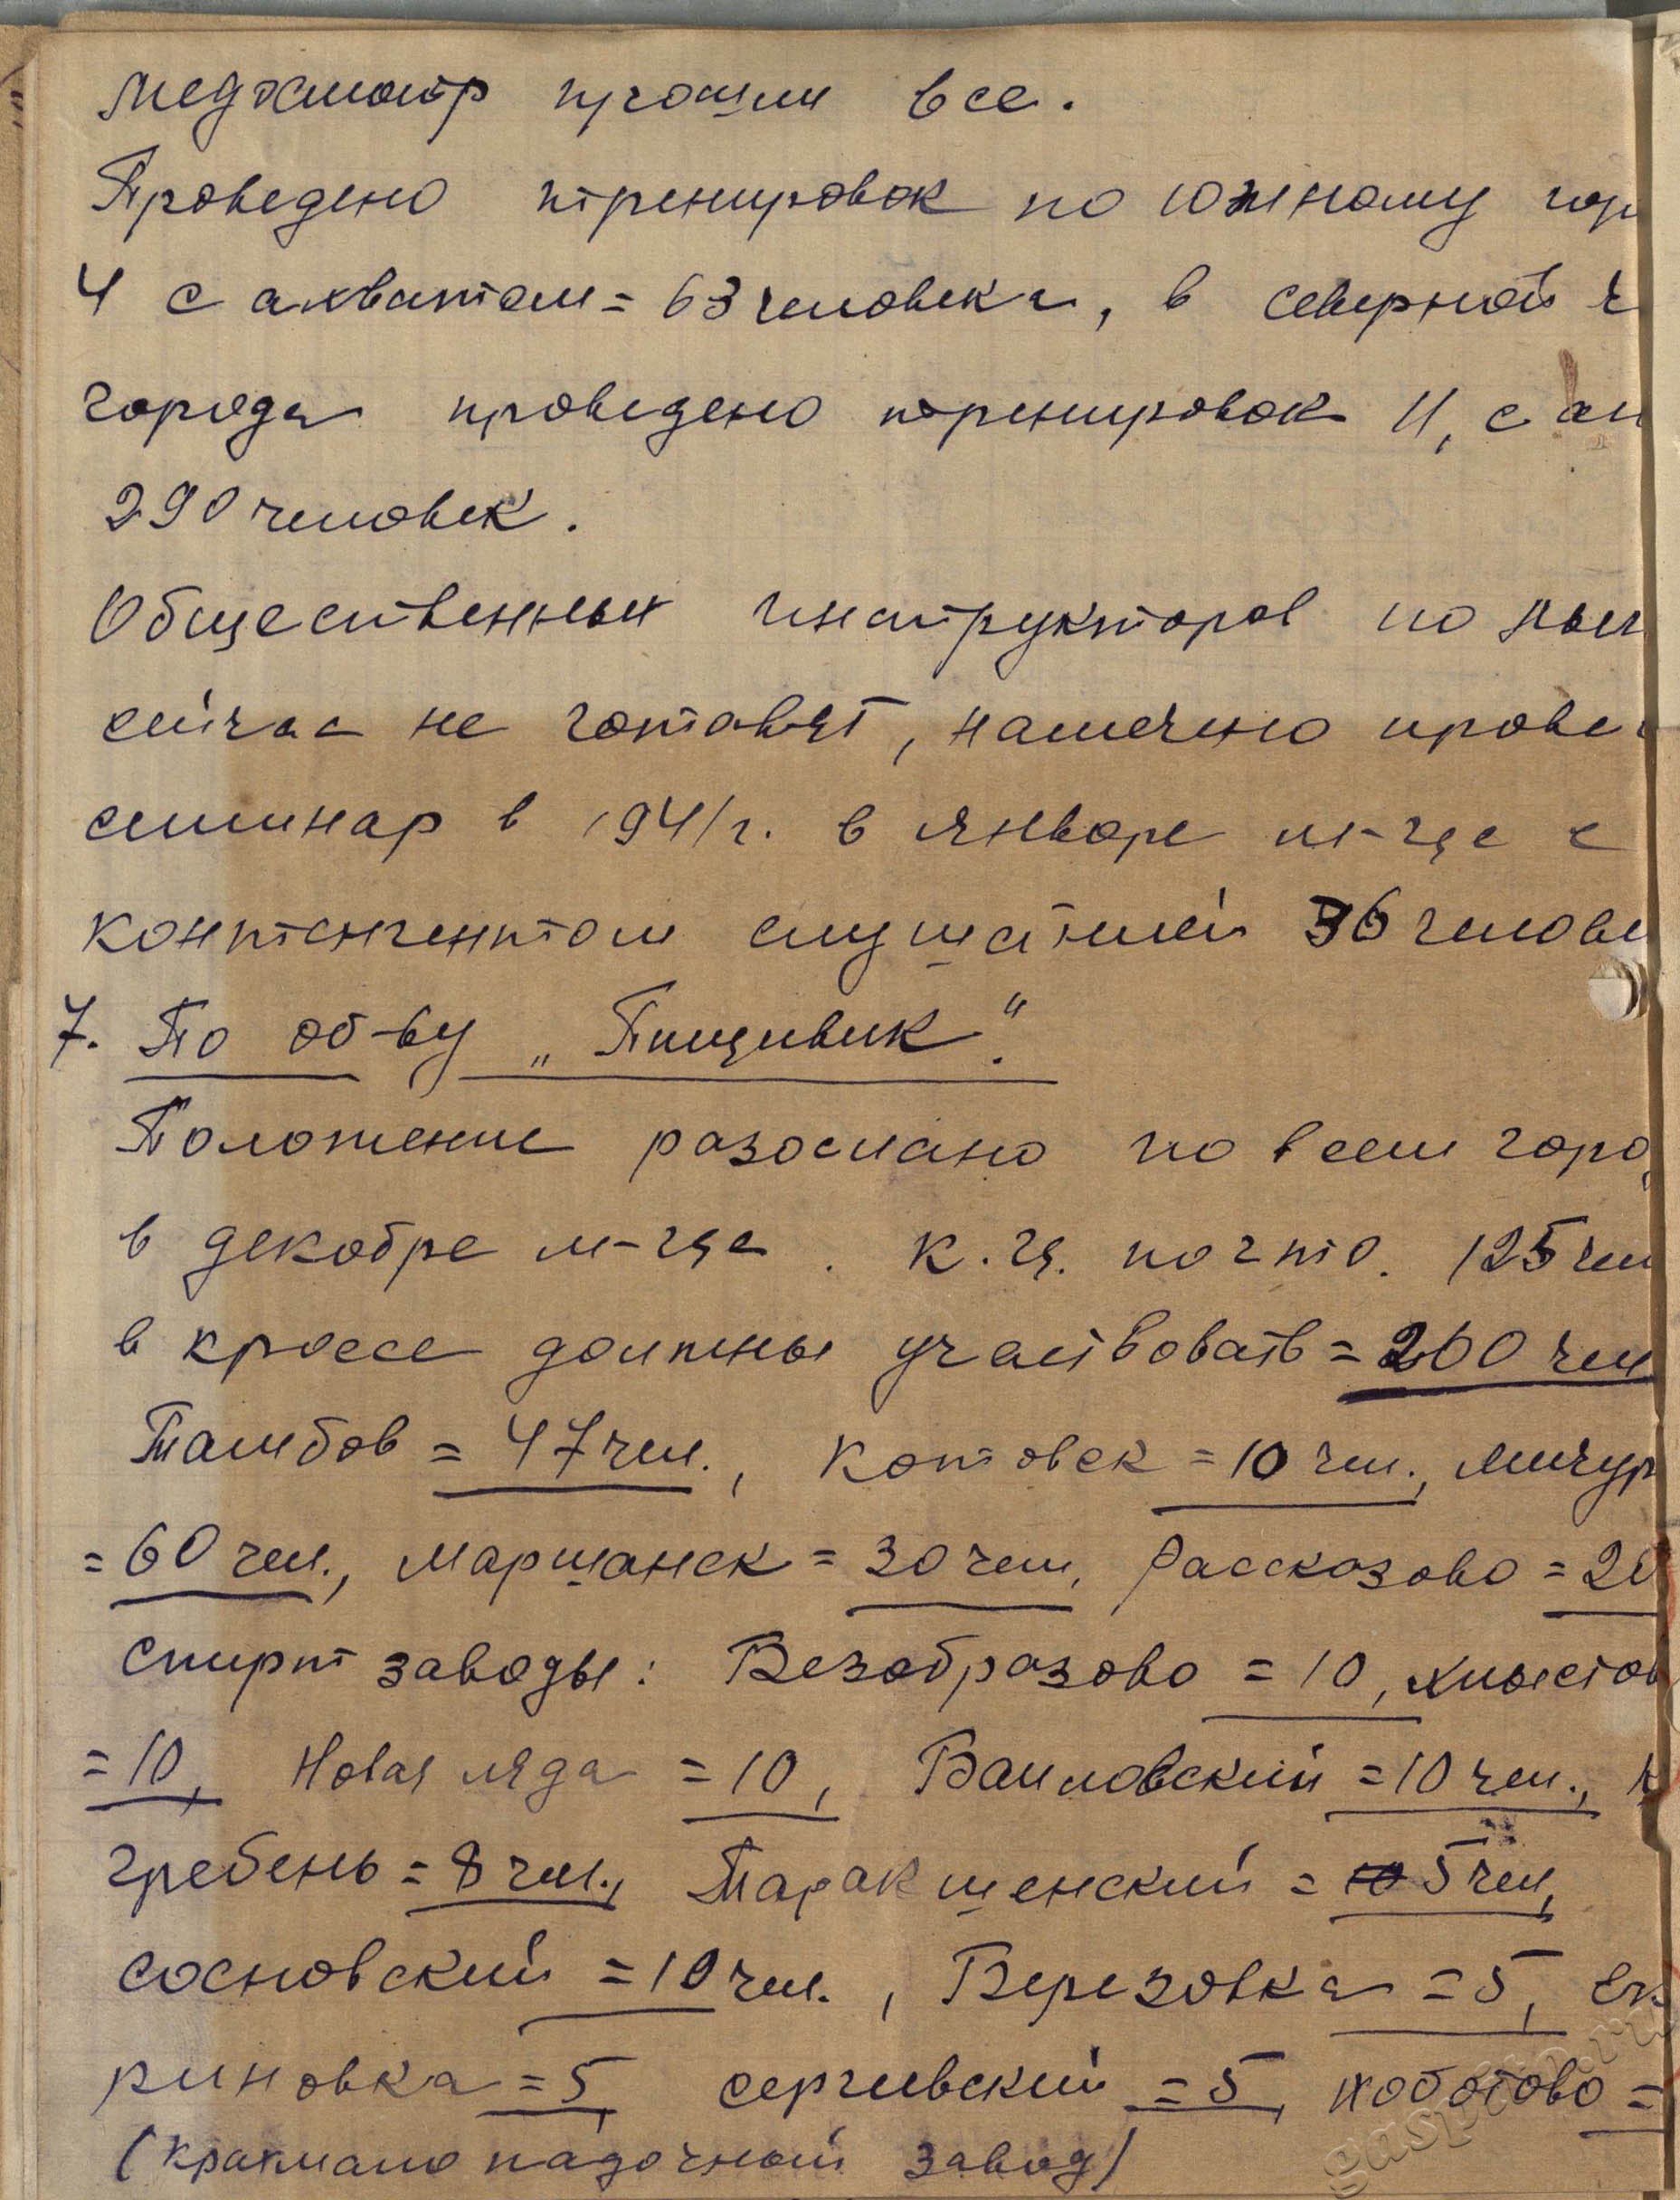 медосмотр прошли все.
Проведено тренировок по южному гор
4 с ахватом = 63 человека, в северной ч
города проведено тренировок 11, с ах
290 человек.
Общественных инструкторов по лыж
сейчас не готовят, намечено прове
семинар в 1941 г. в январе м-це с
контенгентом слушателей 36 челове
7. По об-ву „Пищевик".
Положение разослано по всем горо
в декабре м-це. К.ц. по г т о. 125 чел
в кроссе должны участвовать = 200 чел
Тамбов = 47 чел., Котовск = 10 чел., Мичур
= 60 чел., Моршанск = 30 чел, Рассказово = 20
спирт заводы: Безобразово = 10, хлыстов
= 10, Новая ляда = 10, Ваиловский = 10 чел., К
гребень = 8 чел., Таракшенский = 10 5 чел,
сосновский = 10 чел., Березовка = 5, Ек
риновка = 5 сергиевский = 5, хоботово =
(крахмало падочный завод)
gaspito.ru